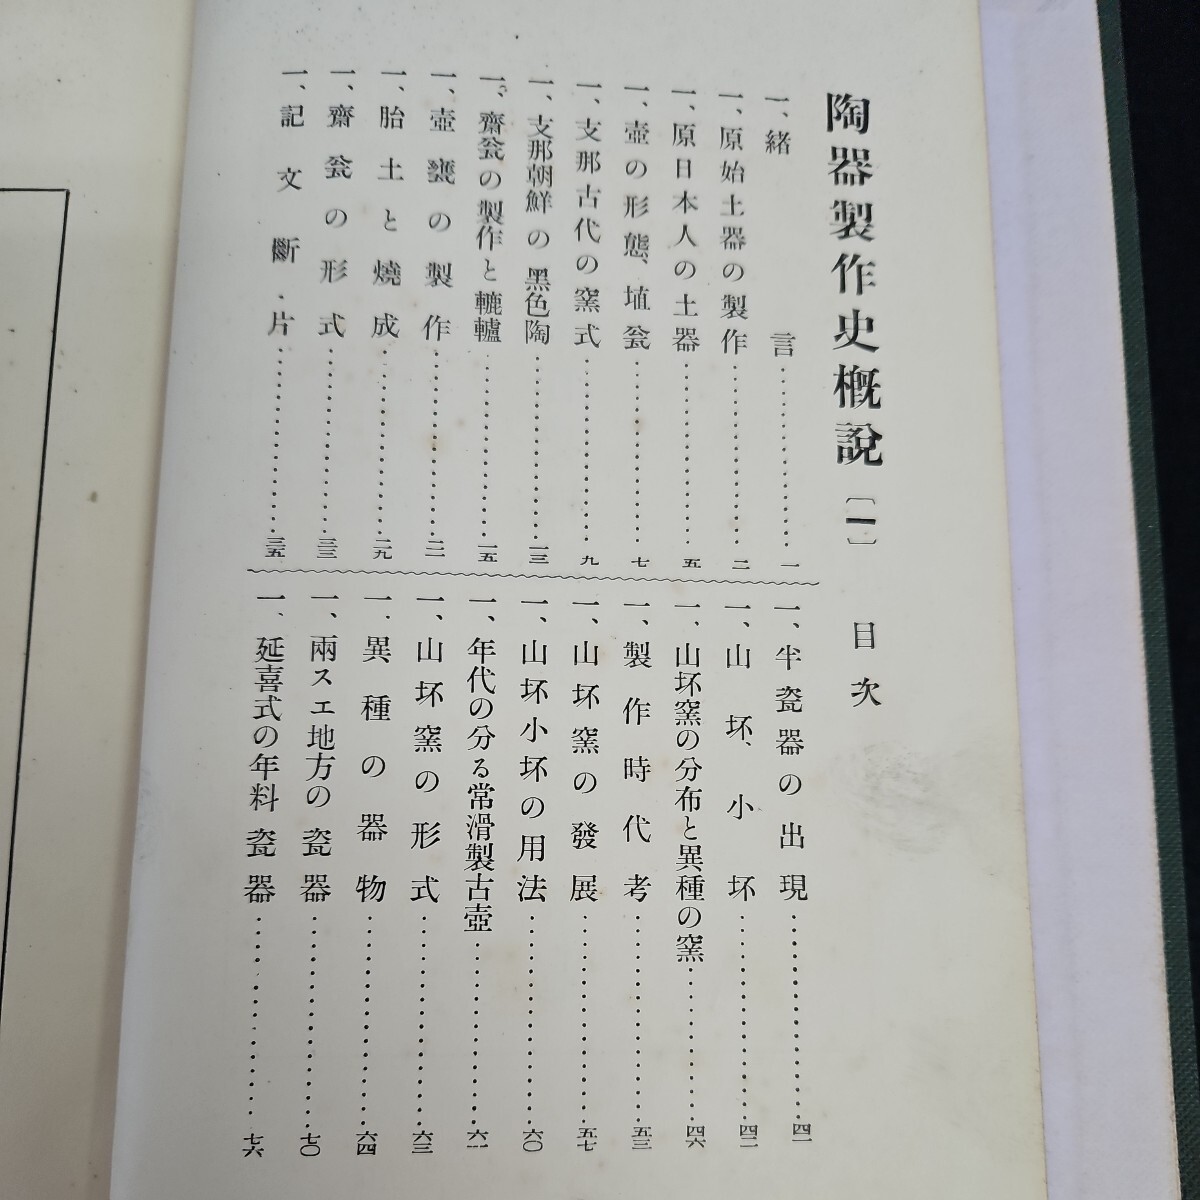 陶器製作史槪說〔一〕 目次
一、緒言……一
一、原始土器の製作……二
一、原日本人の土器……五
一、壺の形態、埴瓮……七
一、支那古代の窯式……九
一、支那朝鮮の黑色陶……一三
一、齋瓮の製作と轆轤……一五
一、壺甕の製作……二二
一、胎土と燒成……二九
一、齋瓮の形式……三三
一、記文斷片……三五
一、半瓷器の出現……四一
一、山坏、小坏……四二
一、山坏窯の分布と異種の窯……四六
一、製作時代考……五三
一、山坏窯の發展……五七
一、山坏小坏の用法……六〇
一、年代の分る常滑製古壺……六一
一、山坏窯の形式……六三
一、異種の器物……六四
一、兩スエ地方の瓷器……七〇
一、延喜式の年料瓷器……七六